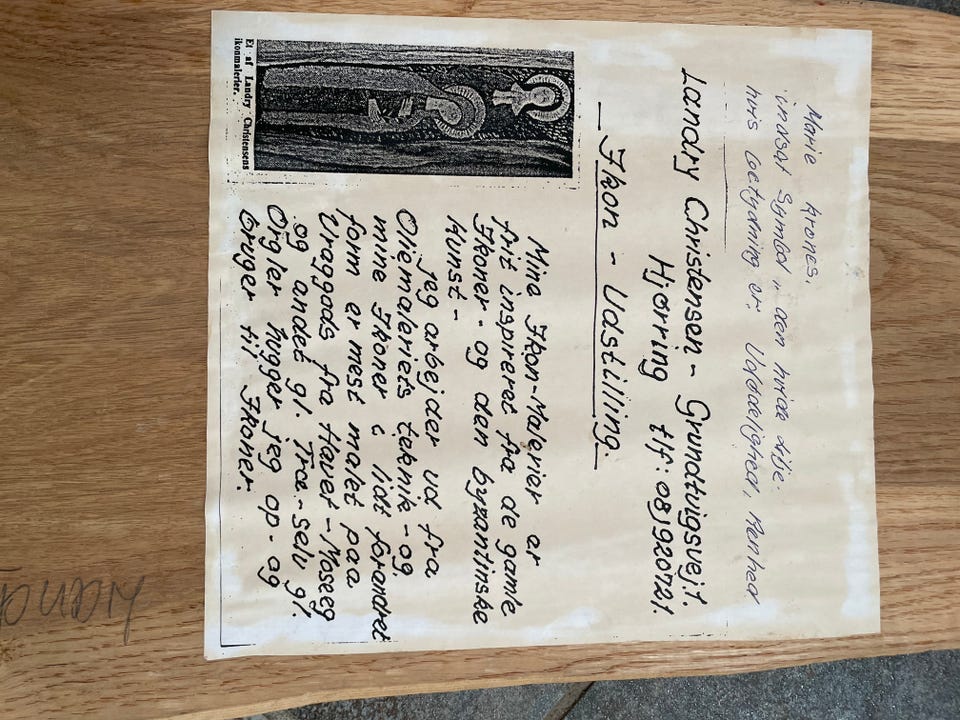 Marie krones.
indsat Symbol „ den hvide lilje.
hvis betydning er: Uskyldighed, Renhed
Landry Christensen - Grundtvigsvej 1.
Hjørring tlf: 08)920721.
— Ikon - Udstilling. —
Et af Landry Christensens
ikonmalerier.
Mine Ikon-Malerier ar
frit inspireret fra de gamle
Ikoner - og den byzantinske
kunst -
Jeg arbejder ud fra
Oliemaleriets teknik - og
mine Ikoner i lidt forandret
form er mest malet paa
Vraggods fra Havet - Moseeg
og andet gl. Træ - selv gl.
Orgler hugger jeg op - og
bruger til Ikoner.